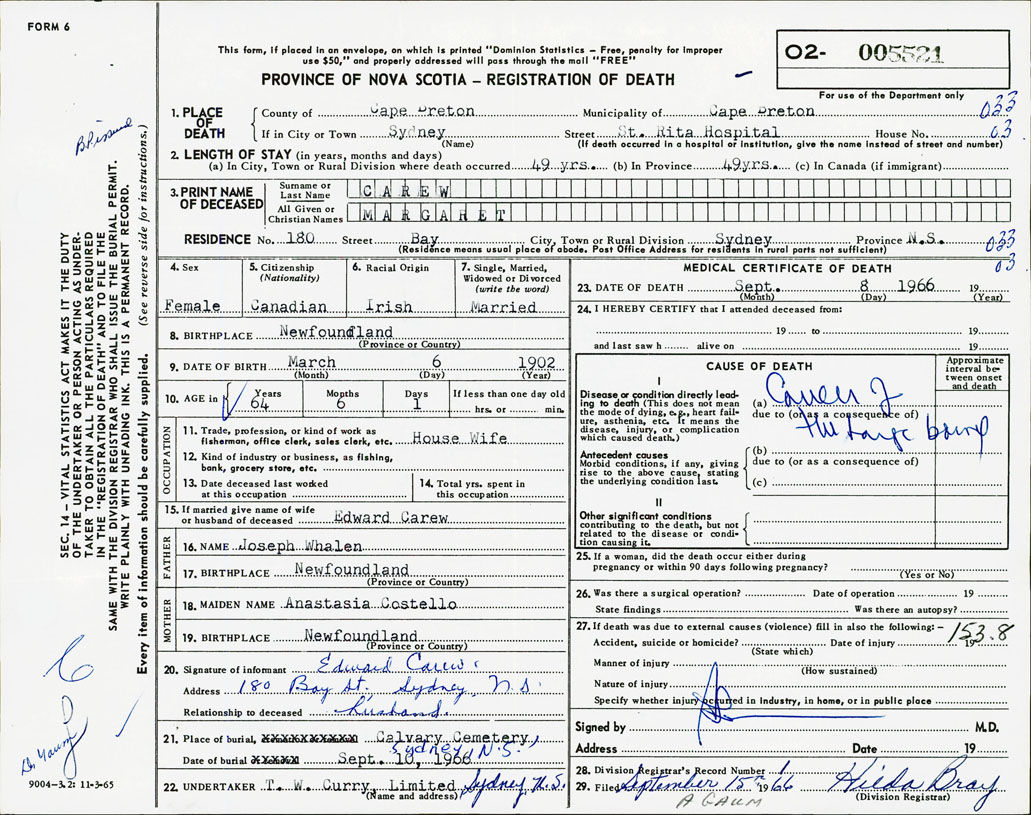 FORM 6
This form, if placed in an envelope, on which is printed "Dominion Statistics – Free, penalty for improper
use $50," and properly addressed will pass through the mail "FREE"
PROVINCE OF NOVA SCOTIA – REGISTRATION OF DEATH
O2- 005521
For use of the Department only
1. PLACE OF DEATH
County of Cape Breton Municipality of Cape Breton 033
If in City or Town Sydney Street St. Rita Hospital House No. 03
(Name) (If death occurred in a hospital or institution, give the name instead of street and number)
2. LENGTH OF STAY (in years, months and days)
(a) In City, Town or Rural Division where death occurred 49 yrs. (b) In Province 49yrs. (c) In Canada (if immigrant)
3. PRINT NAME OF DECEASED
Surname or Last Name CAREW
All Given or Christian Names MARGARET
RESIDENCE No. 180 Street Bay City, Town or Rural Division Sydney Province N.S. 033
(Residence means usual place of abode. Post Office Address for residents in rural parts not sufficient) 03
4. Sex
Female
5. Citizenship
(Nationality)
Canadian
6. Racial Origin
Irish
7. Single, Married,
Widowed or Divorced
(write the word)
Married
8. BIRTHPLACE Newfoundland
(Province or Country)
9. DATE OF BIRTH March 6 1902
(Month) (Day) (Year)
10. AGE in Years Months Days If less than one day old
64 6 1 hrs. or min.
OCCUPATION
11. Trade, profession, or kind of work as
fisherman, office clerk, sales clerk, etc. House Wife
12. Kind of industry or business, as fishing,
bank, grocery store, etc.
13. Date deceased last worked
at this occupation
14. Total yrs. spent in
this occupation
15. If married give name of wife
or husband of deceased Edward Carew
FATHER
16. NAME Joseph Whalen
17. BIRTHPLACE Newfoundland
(Province or Country)
MOTHER
18. MAIDEN NAME Anastasia Costello
19. BIRTHPLACE Newfoundland
(Province or Country)
20. Signature of informant Edward Carew
Address 180 Bay St., Sydney, N.S.
Relationship to deceased husband.
21. Place of burial, XXXXXXXXXXX Calvary Cemetery,
Sydney, N.S.
Date of burial XXXXX Sept. 10, 1966
22. UNDERTAKER T. W. Curry, Limited, Sydney N.S.
(Name and address)
MEDICAL CERTIFICATE OF DEATH
23. DATE OF DEATH Sept. 8 1966 19
(Month) (Day) (Year)
24. I HEREBY CERTIFY that I attended deceased from:
19 to 19
and last saw h alive on 19
CAUSE OF DEATH
Approximate
interval be-
tween onset
and death
I
Disease or condition directly lead-
ing to death (This does not mean
the mode of dying, e.g., heart fail-
ure, asthenia, etc. It means the
disease, injury, or complication
which caused death.)
(a) Cancer of
due to (or as a consequence of)
the large bowel
Antecedent causes
Morbid conditions, if any, giving
rise to the above cause, stating
the underlying condition last.
(b)
due to (or as a consequence of)
(c)
II
Other significant conditions
contributing to the death, but not
related to the disease or condi-
tion causing it.
25. If a woman, did the death occur either during
pregnancy or within 90 days following pregnancy?
(Yes or No)
26. Was there a surgical operation? Date of operation 19
State findings Was there an autopsy?
27. If death was due to external causes (violence) fill in also the following: –
153.8
Accident, suicide or homicide? Date of injury 19
(State which)
Manner of injury
(How sustained)
Nature of injury
Specify whether injury occurred in Industry, in home, or in public place
Signed by M.D.
Address Date 19
28. Division Registrar's Record Number 1
29. Filed September 15th 1966 Hilda Bray
(Division Registrar)
A GAUM
SEC. 14 – VITAL STATISTICS ACT MAKES IT THE DUTY
OF THE UNDERTAKER OR PERSON ACTING AS UNDER-
TAKER TO OBTAIN ALL THE PARTICULARS REQUIRED
IN THE "REGISTRATION OF DEATH" AND TO FILE THE
SAME WITH THE DIVISION REGISTRAR WHO SHALL ISSUE THE BURIAL PERMIT.
WRITE PLAINLY WITH UNFADING INK. THIS IS A PERMANENT RECORD.
Every item of information should be carefully supplied. (See reverse side for instructions.)
B.P. issued
Dr Gaum
9004-3.2: 11-3-65